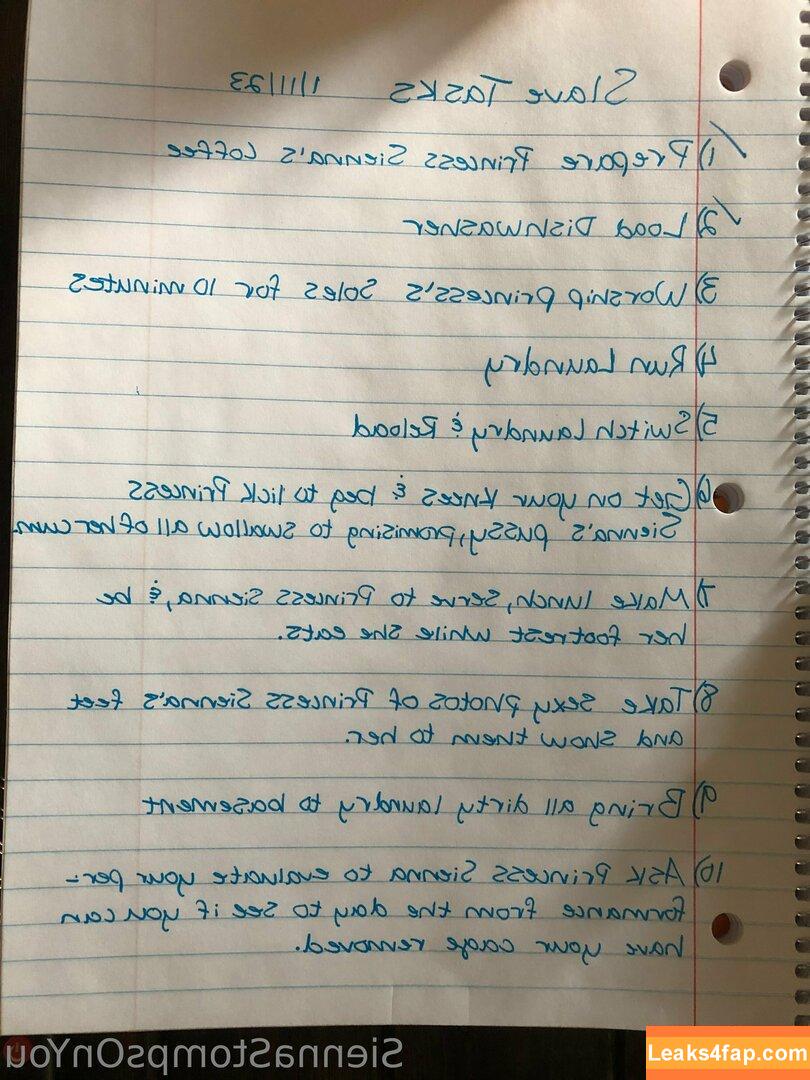 Slave Tasks 1/11/23
1) Prepare Princess Sienna's Coffee
2) Load Dishwasher
3) Worship Princess's Soles for 10 minutes
4) Run Laundry
5) Switch Laundry & Reload
6) Get on your knees & beg to lick Princess
Sienna's pussy, promising to swallow all of her cum
7) Make lunch, serve to Princess Sienna, & be
her footrest while she eats.
8) Take sexy photos of Princess Sienna's feet
and show them to her.
9) Bring all dirty laundry to basement
10) Ask Princess Sienna to evaluate your per-
formance from the day to see if you can
have your cage removed.
SiennaStompsOnYou
Leaks4fap.com